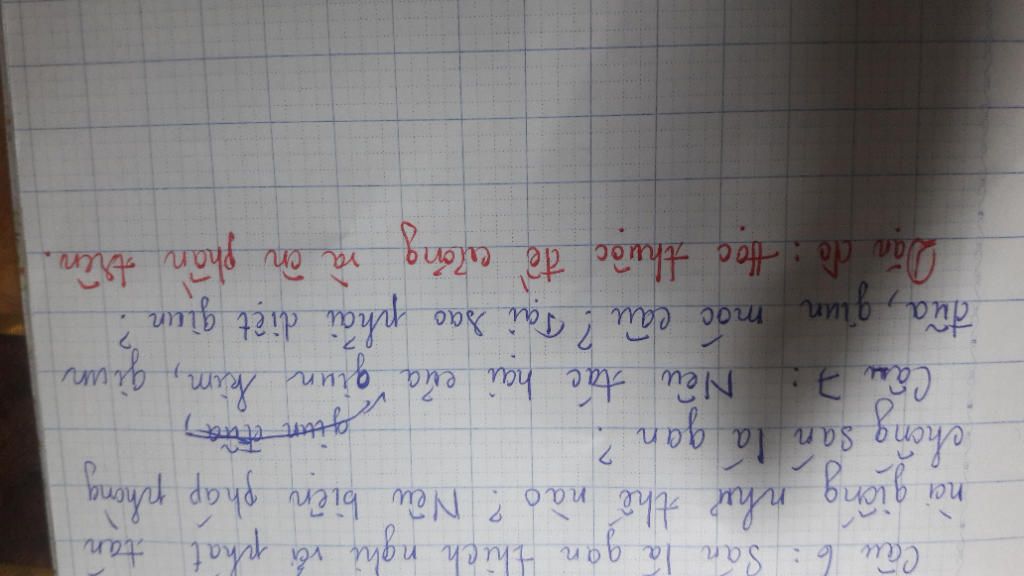 Câu 6: Sán lá gan thích nghi và phát tán
nòi giống như thế nào? Nêu biện pháp phòng
chống sán lá gan?
giun đũa,
Câu 7: Nêu tác hại của giun kim, giun
đũa, giun móc câu? Tại sao phải diệt giun?
Dặn dò: Học thuộc đề cương và ôn phần trên.